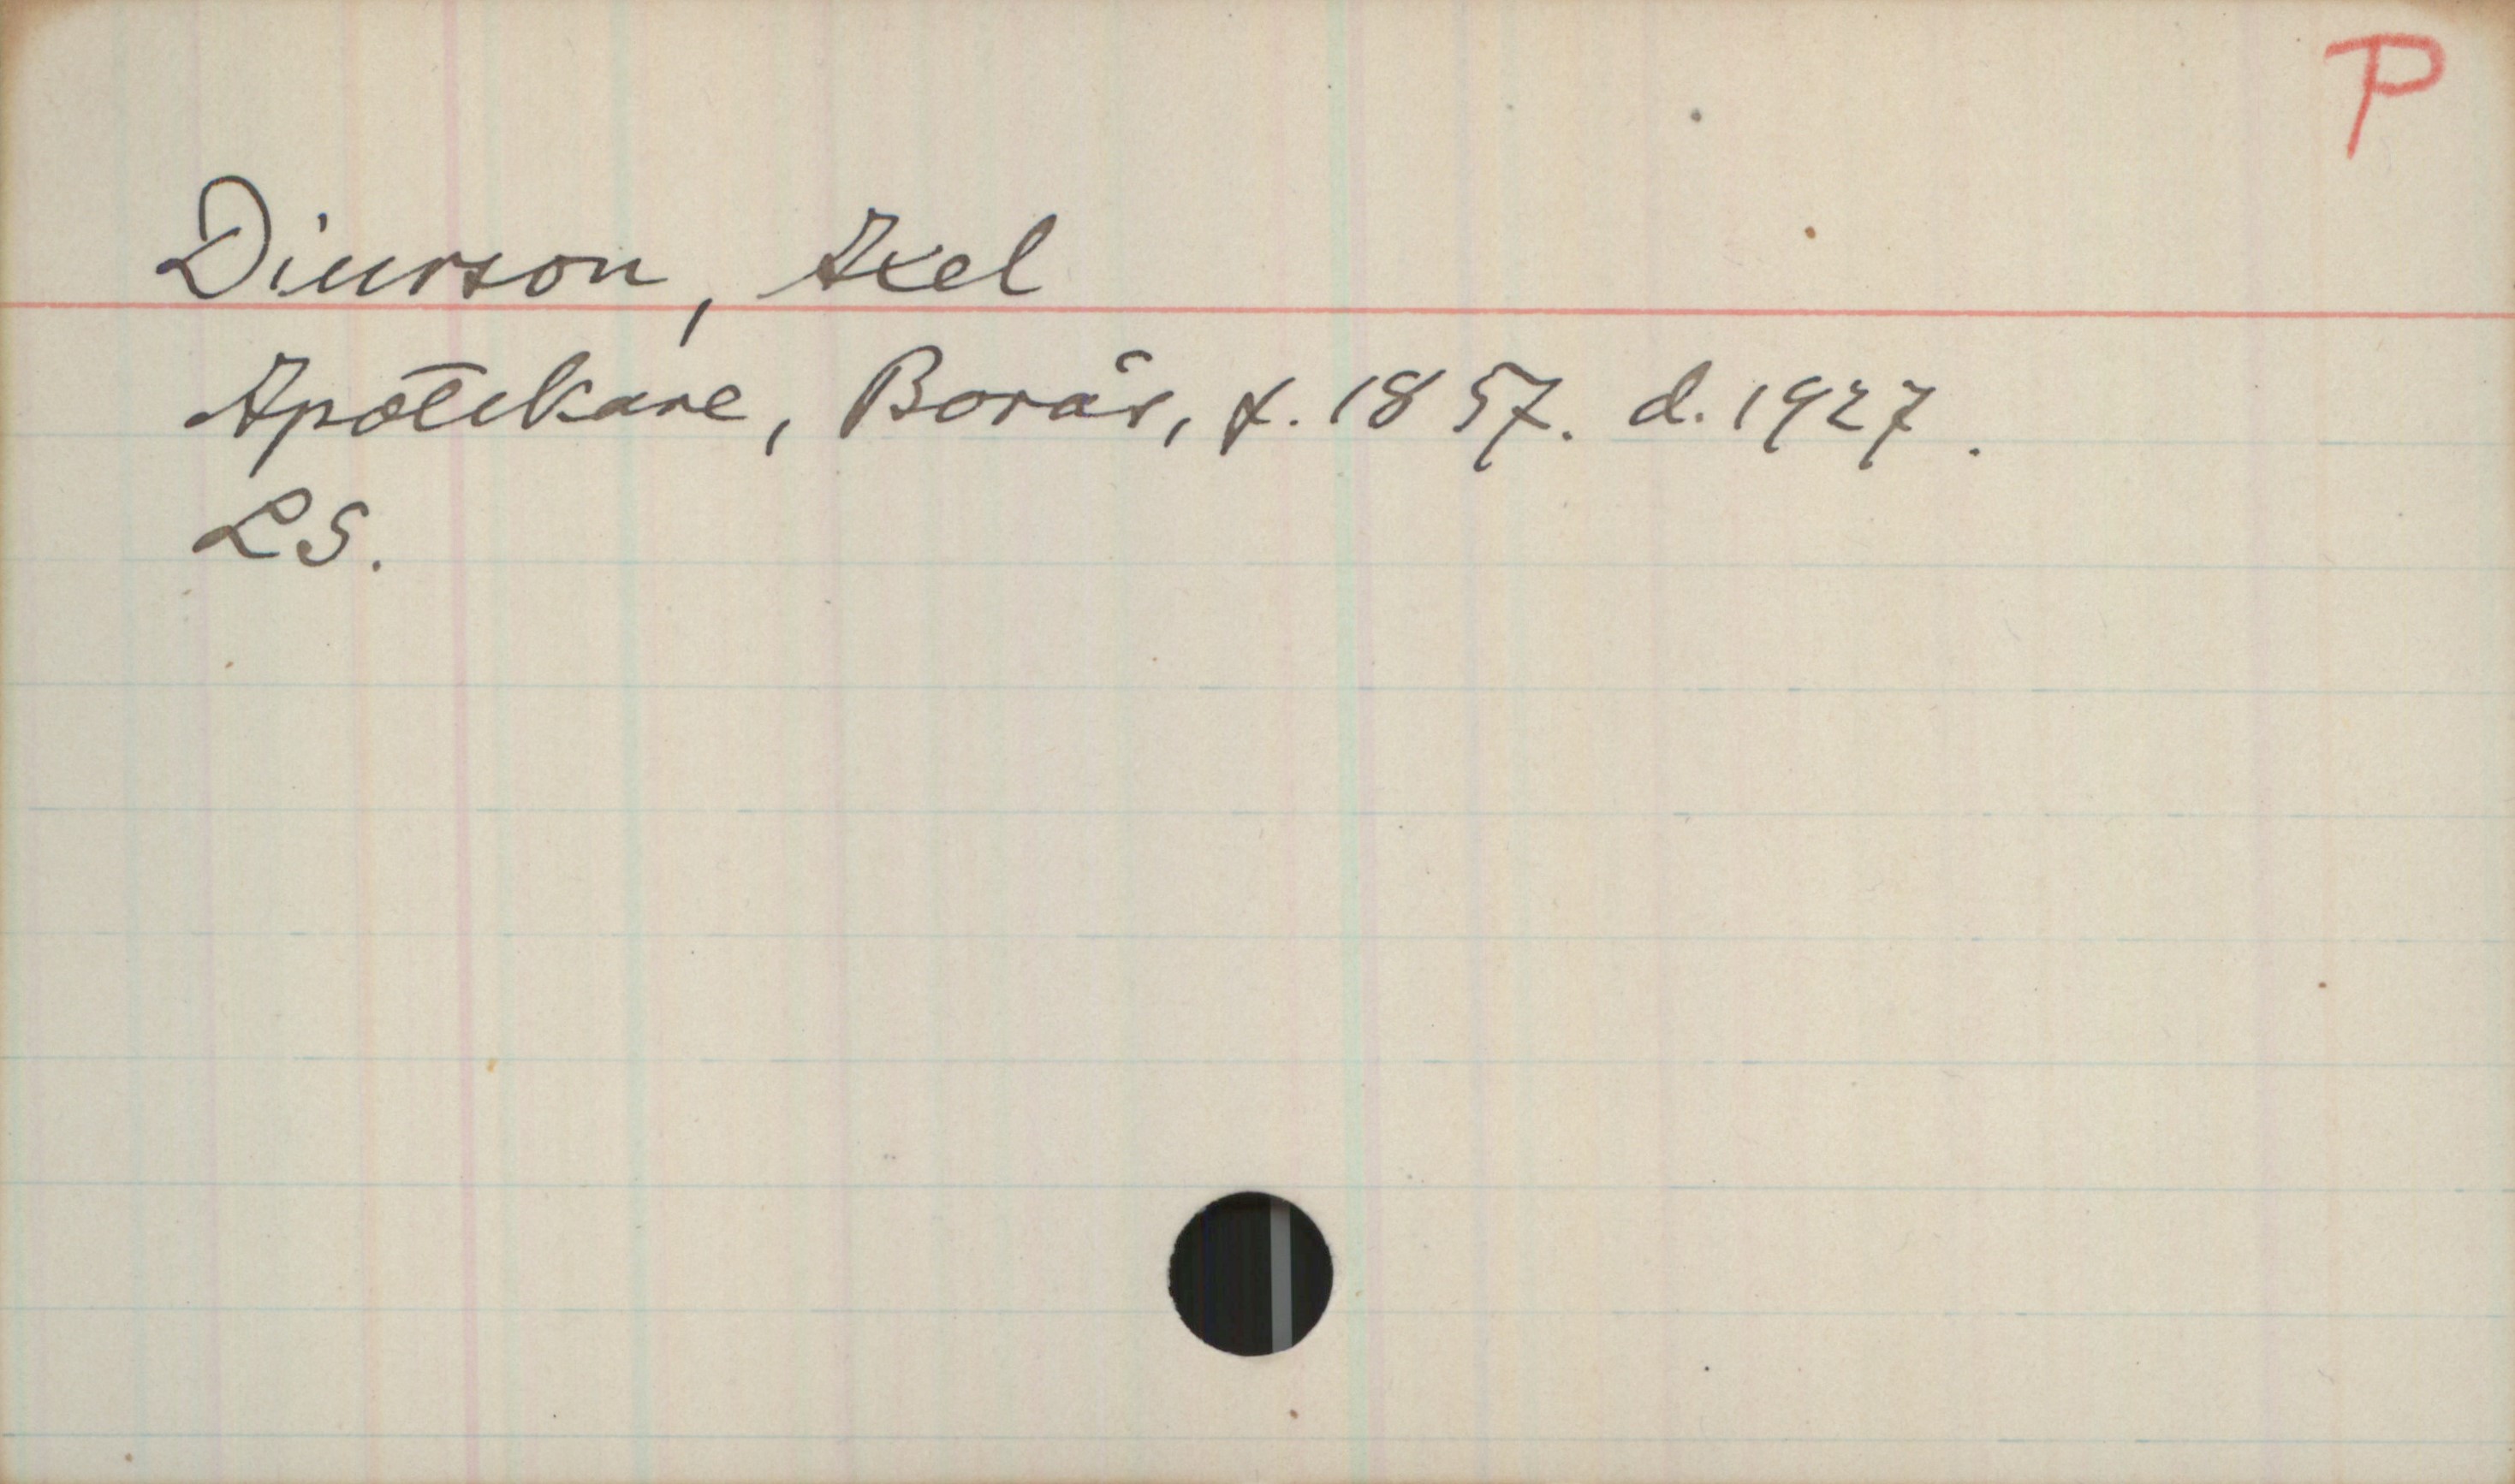 P
Diurson, Axel
Apotekare, Borås, f. 1857. d. 1927.
LS.